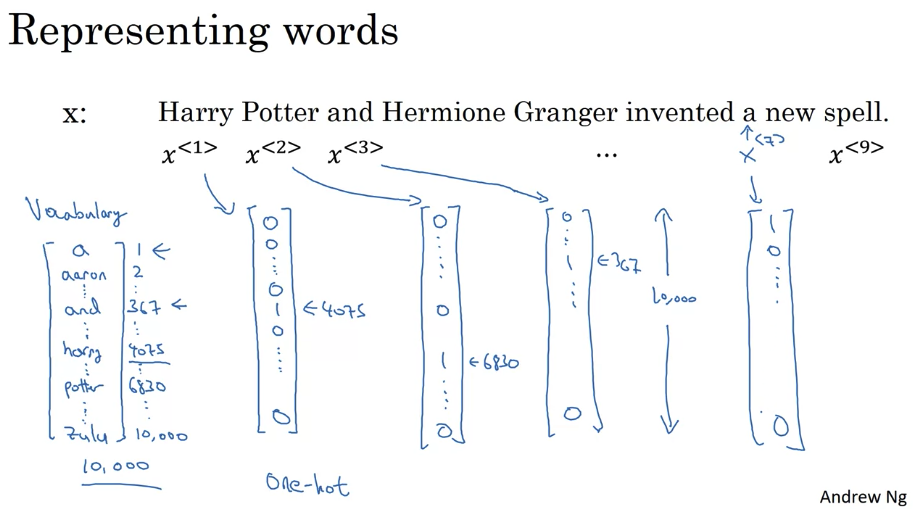 Representing words
x: Harry Potter and Hermione Granger invented a new spell.
x<1> x<2> x<3> ... x<7> x<9>
Vocabulary
a 1 ←
aaron 2
⋮ ⋮
and 367 ←
⋮ ⋮
harry 4075
⋮ ⋮
potter 6830
⋮ ⋮
zulu 10,000
10,000
0
0
⋮
0
1 ← 4075
0
⋮
0
0
⋮
0
1 ← 6830
⋮
0
0
⋮
1 ← 367
⋮
0
10,000
1
0
⋮
0
One-hot
Andrew Ng